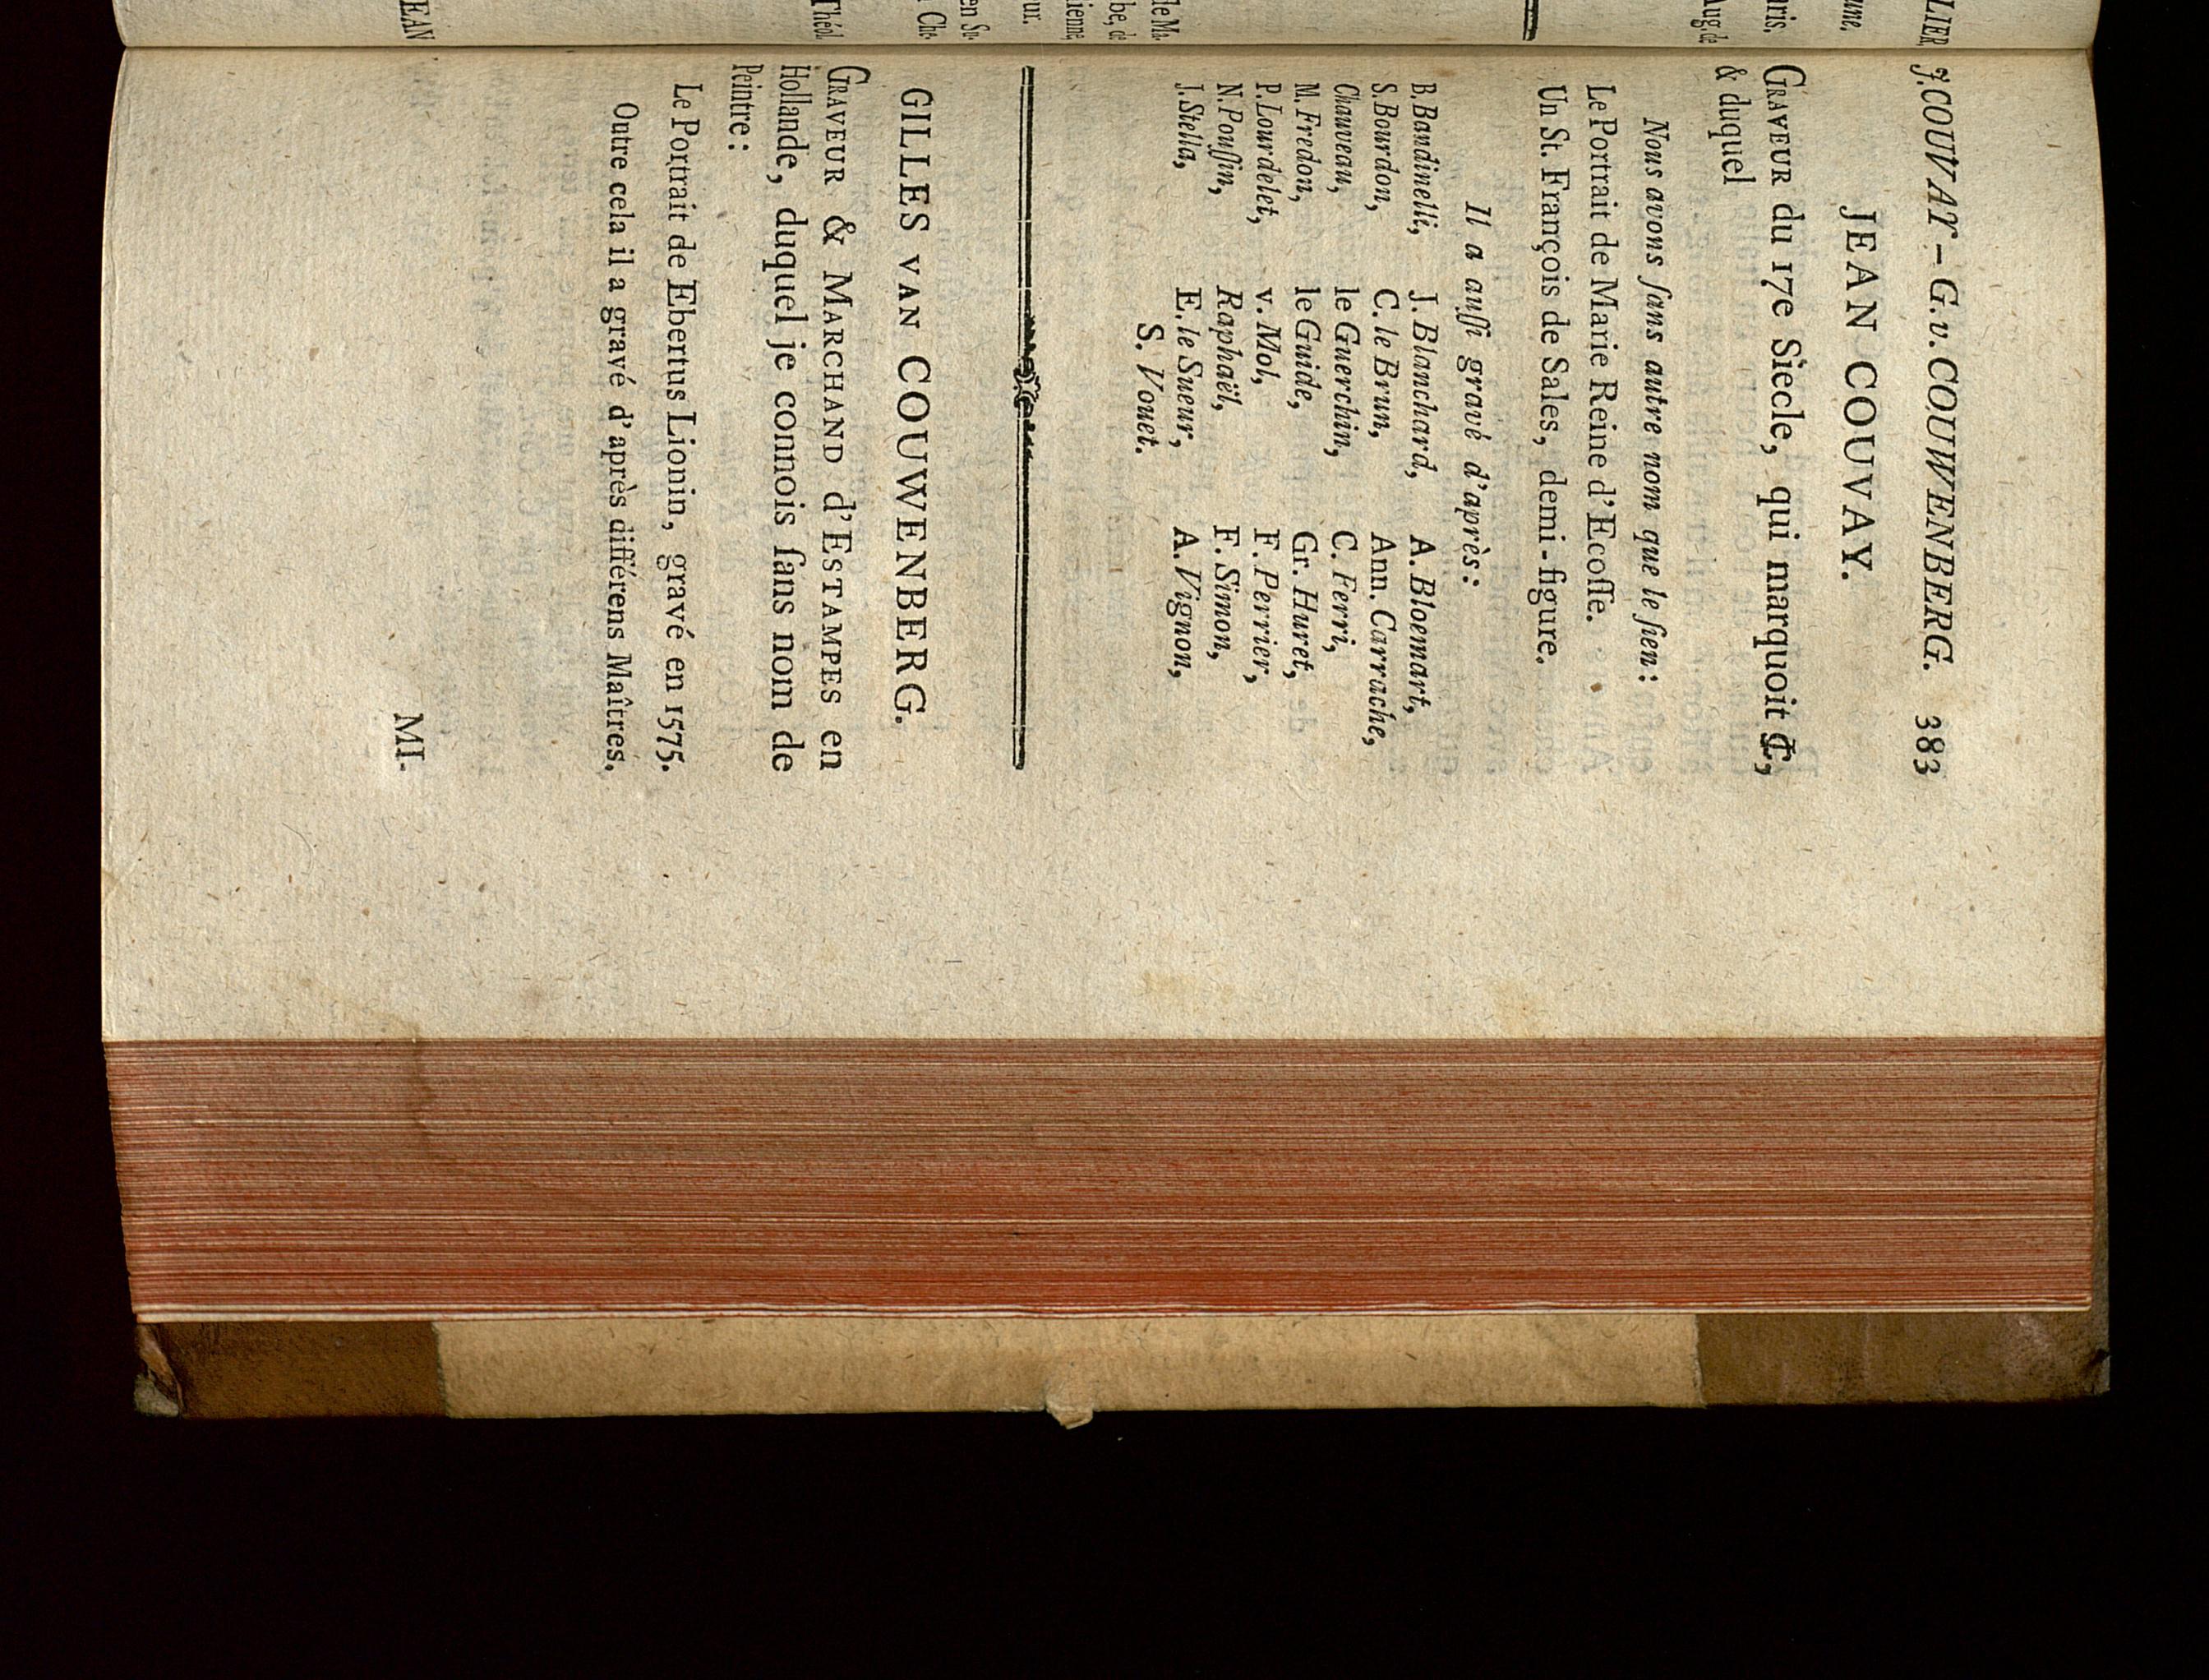 J. COUVAY – G. v. COUWENBERG. 383
JEAN COUVAY.
GRAVEUR du 17e Siecle, qui marquoit
& duquel
Nous avons ſans autre nom que le ſien:
Le Portrait de Marie Reine d'Ecoſſe.
Un St. François de Sales, demi-figure.
Il a auſſi gravé d'après:
B. Bandinelli, J. Blanchard, A. Bloemart,
S. Bourdon, C. le Brun, Ann. Carrache,
Chauveau, le Guerchin, C. Ferri,
M. Fredon, le Guide, Gr. Huret,
P. Lourdelet, v. Mol, F. Perrier,
N. Pouſſin, Raphaël, F. Simon,
J. Stella, E. le Sueur, A. Vignon,
S. Vouet.
GILLES VAN COUWENBERG.
GRAVEUR & MARCHAND d'ESTAMPES en
Hollande, duquel je connois ſans nom de
Peintre:
Le Portrait de Ebertus Lionin, gravé en 1575.
Outre cela il a gravé d'après différens Maîtres.
MI-
LIER,
une.
aris.
Aug. de
le Ma-
be, de
ienne,
ur.
en Su-
Ch-
Théol.
EAN